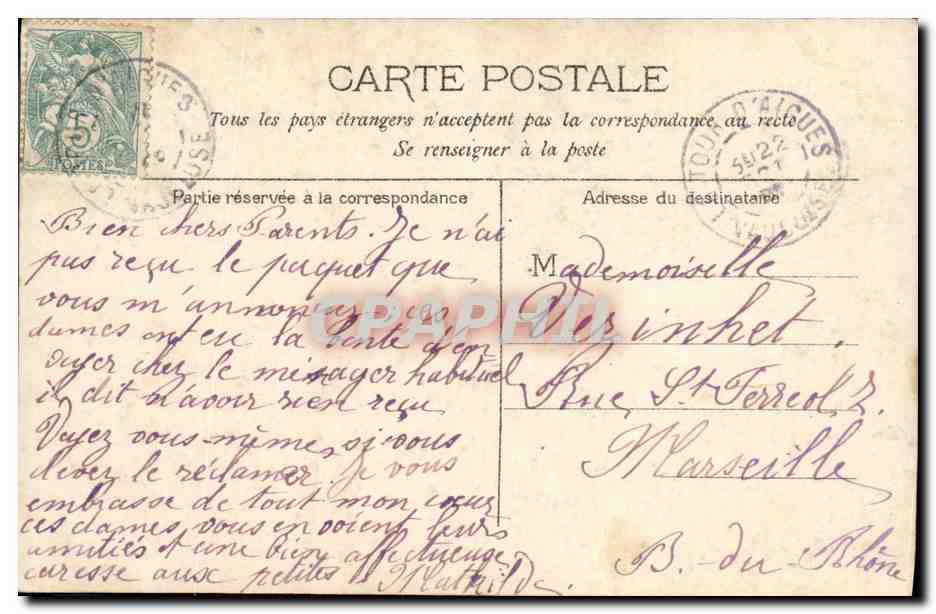 CARTE POSTALE
Tous les pays étrangers n'acceptent pas la correspondance au recto
Se renseigner à la poste
TOUR D'AIGUES
22
VAUCLUSE
5
POSTES
VAUCLUSE
Partie réservée à la correspondance
Bien chers Parents. Je n'ai
pas reçu le paquet que
vous m'annonciez; ces
dames ont eu la bonté d'en
voyer chez le ménager habituel
il dit n'avoir rien reçu
Voyez vous-même, si vous
devez le réclamer. Je vous
embrasse de tout mon cœur
ces dames vous envoient leurs
amitiés et une bien affectueuse
caresse aux petites Mathilde.
Adresse du destinataire
Mademoiselle
Verinhet.
Rue St Ferreol, 2.
Marseille
B. du Rhône
CPAPHIL